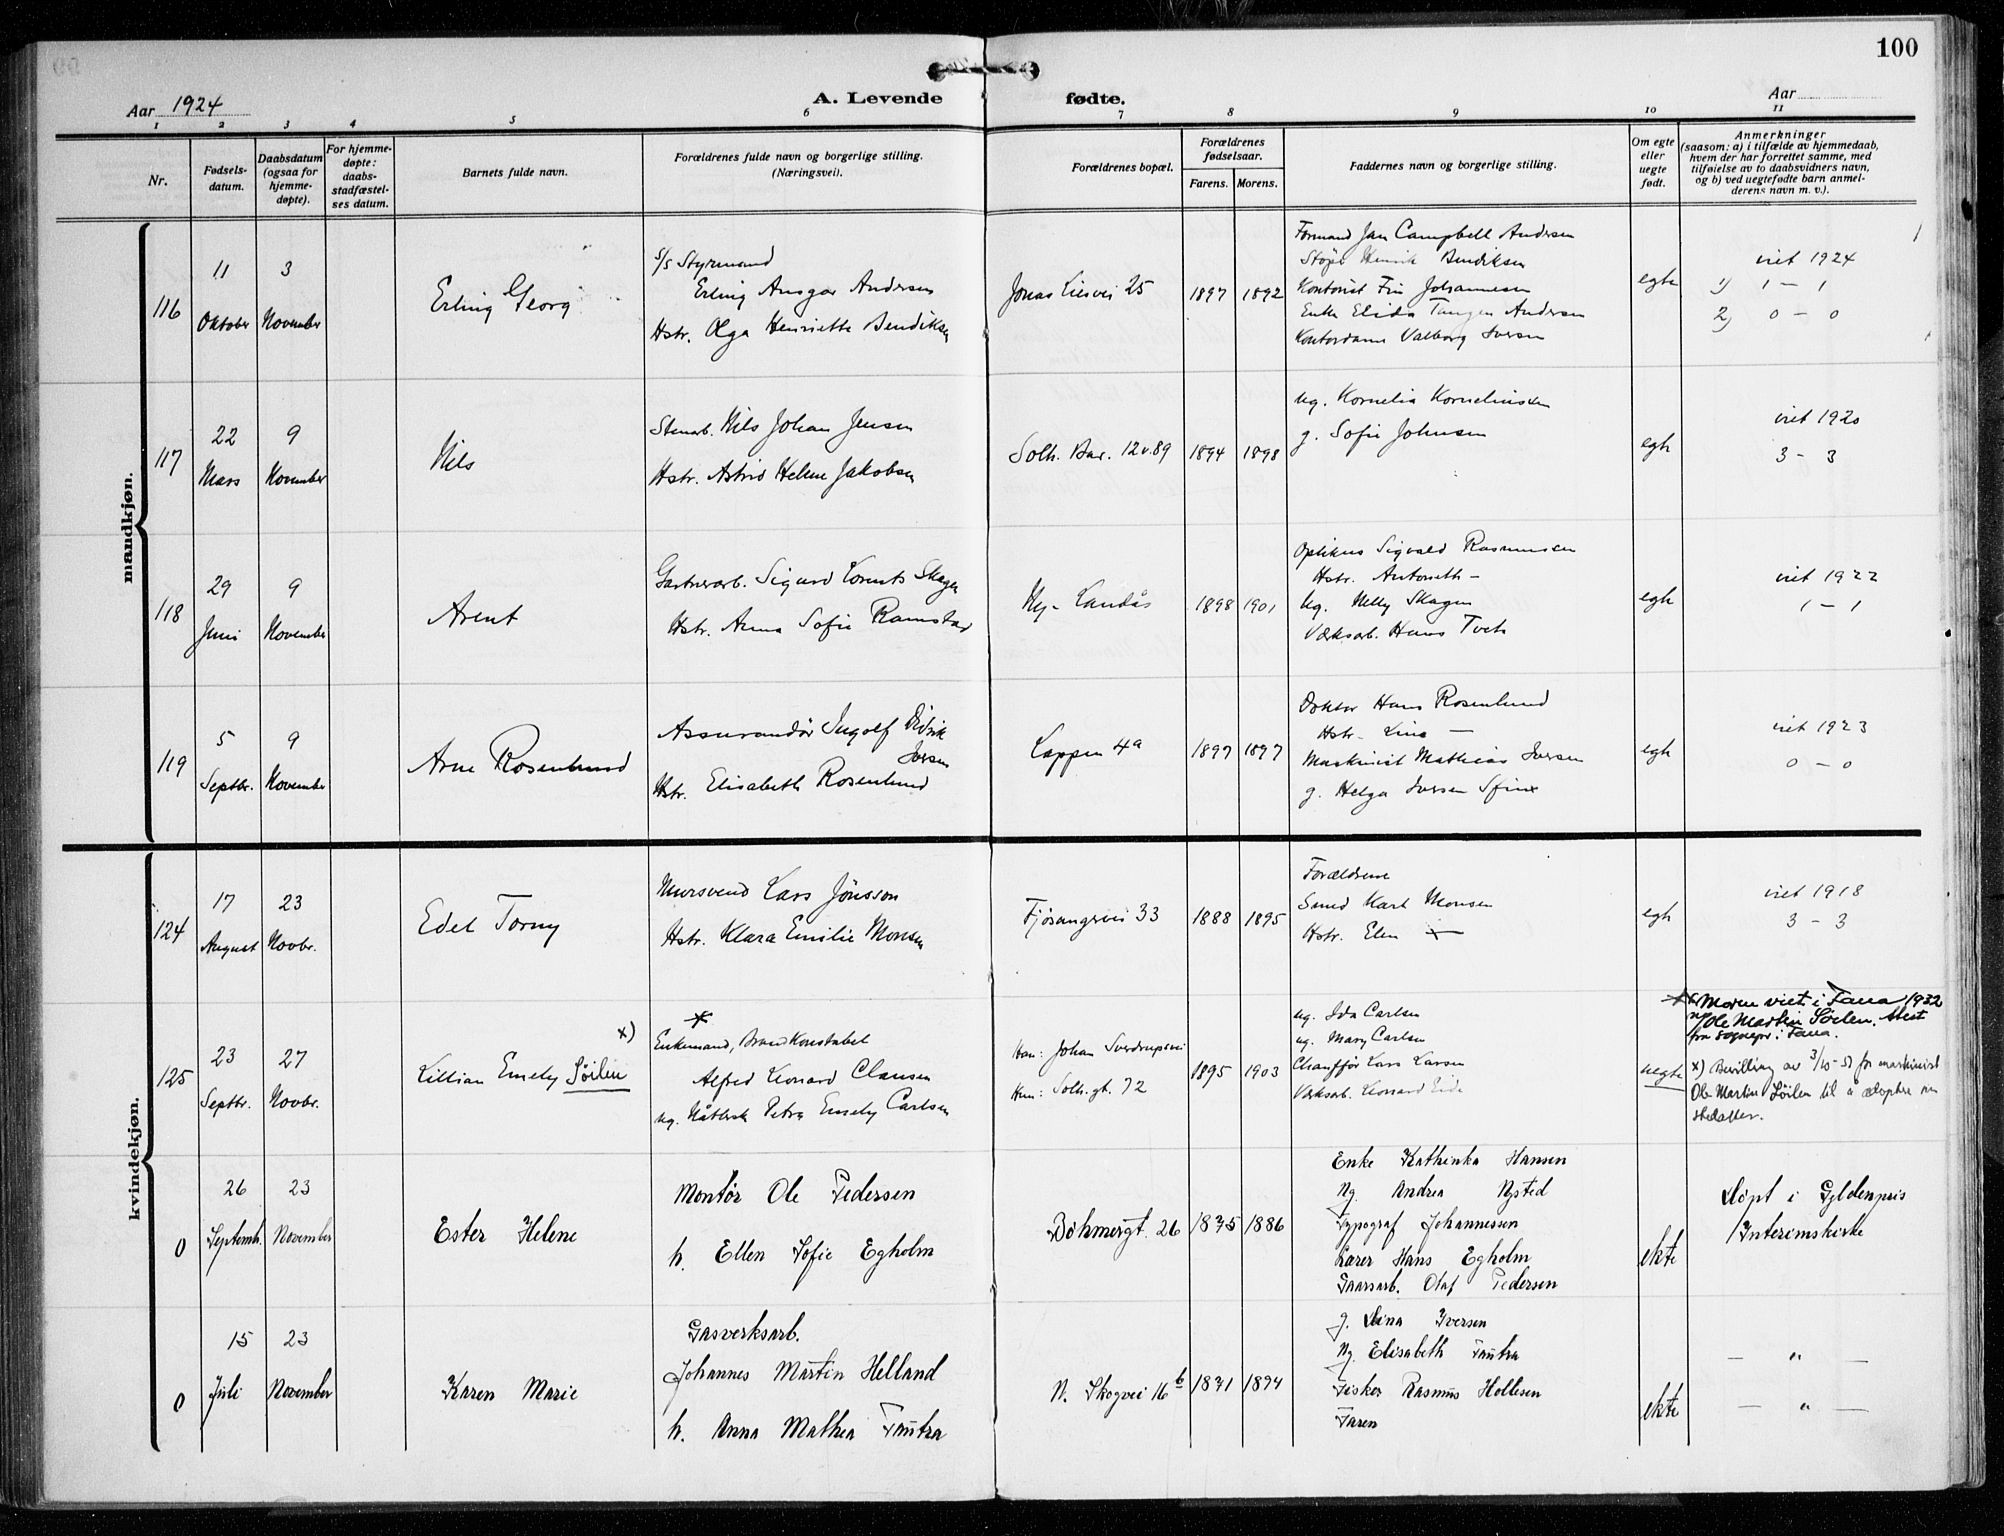 100
Aar 1924
A. Levende fødte.
Aar
1 2 3 4 5 6 7 8 9 10 11
Nr.
Fødsels-
datum.
Daabsdatum
(ogsaa for
hjemme-
døpte).
For hjemme-
døpte:
daabs-
stadfæstel-
ses datum.
Barnets fulde navn.
Forældrenes fulde navn og borgerlige stilling.
(Næringsvei).
Forældrenes bopæl.
Forældrenes
fødselsaar.
Farens. Morens.
Faddernes navn og borgerlige stilling.
Om egte
eller
uegte
født.
Anmerkninger
(saasom: a) i tilfælde av hjemmedaab,
hvem der har forrettet samme, med
tilføielse av to daabsvidners navn,
og b) ved uegtefødte barn anmel-
derens navn m. v.).
mandkjøn.
116
11
Oktober
3
November
Erling Georg
S/S Styrmand
Erling Ansgar Andersen
Hstr. Olga Henriette Bendiksen
Jonas Liesvei 25
1897 1892
Formand Jan Campbell Andersen
Henrik Bendiksen
Kontorist Fin Johannesen
Enke Elida Tangen Andersen
Kontordame Valborg Iversen
egte
viet 1924
1) 1 - 1
2) 0 - 0
117
22
Mars
9
November
Nils
Stenarb. Nils Johan Jensen
Hstr. Astrid Helene Jakobsen
Solh. Bar. 12 v. 89
1894 1898
Ug. Kornelia Kornelinssen
g. Sofie Johnsen
egte
viet 1920
3 - 3
118
29
Juni
9
November
Arent
Gartnerarb. Sigurd Lorents Skagen
Hstr. Anna Sofie Ramstad
Ny-Landås
1898 1901
Optikus Sigvald Rasmussen
Hstr. Antonette -
Ug. Nelly Skagen
Værksarb. Hans Tveit
egte
viet 1922
1 - 1
119
5
Septbr.
9
November
Arne Rosenlund
Assurandør Ingolf Didrik
Iversen
Hstr. Elisabeth Rosenlund
Lappen 4a
1897 1897
Doktor Hans Rosenlund
Hstr. Lina -
Maskinist Mathias Iversen
g. Helga Iversen Sfinx
egte
viet 1923
0 - 0
kvindekjøn.
124
17
August
23
Novbr.
Edel Torny
Mursvend Lars Jönsson
Hstr. Klara Emilie Monsen
Fjøsangervei 33
1888 1895
Forældrene
Smed Karl Monsen
Hstr. Elen -
egte
viet 1918
3 - 3
125
23
Septbr.
27
Novbr.
Lillian Emely Søilen x)
*
Enkemand, Brandkonstabel
Alfred Leonard Clausen
ug. Nåtlersk Petra Emely Carlsen
Han: Johan Sverdrupsvei
Hun: Solh.gt. 72
1895 1903
ug. Ida Carlsen
ug. Mary Carlsen
Chauffør Lars Larsen
Værksarb. Leonard Eide
uegte
* Moren viet i Fana 1932
m/Ole Martin Søilen. Attest
fra sognepr. i Fana.
x) Bevilling av 3/10-51 for maskinist
Ole Martin Søilen til å adoptere sin
stedatter.
0
26
Septemb.
23
November
Ester Helene
Montør Ole Pedersen
h. Ellen Sofie Egholm
Bøhmergt. 26
1875 1886
Enke Kathinka Hansen
Ug. Andrea Nysted
Typograf Johannessen
Lærer Hans Egholm
Gaarsarb. Olaf Pedersen
ekte
Døpt i Gyldenpris
Interimskirke
0
15
Juli
23
November
Karen Marie
Gasverksarb.
Johannes Martin Helland
h. Anna Mathea Tautra
N. Skogvei 16b
1871 1894
g. Dina Iversen
Ug. Elisabeth Tautra
Fisker Rasmus Hollesen
Faren
ekte
— " —
— " —